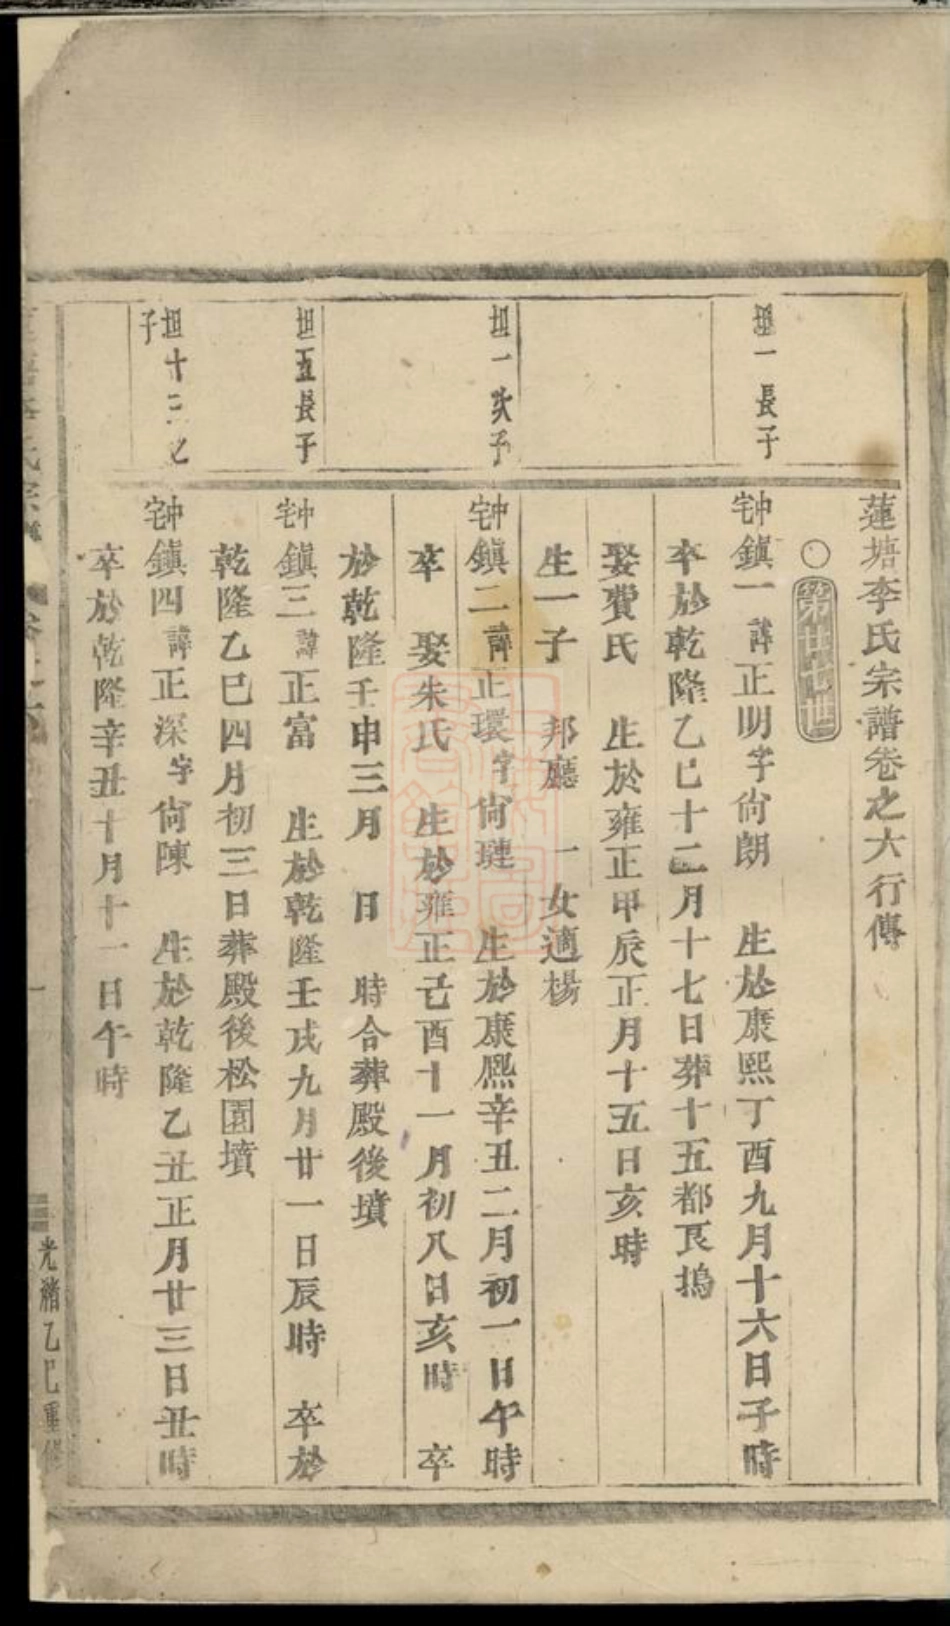 蓮塘李氏宗譜卷之六行傳
○第廿四世
坦一長子
宅中鎮一諱正明字尙朗　生於康熙丁酉九月十六日子時
卒於乾隆乙巳十二月十七日葬十五都艮塢
娶費氏　生於雍正甲辰正月十五日亥時
生一子　邦廳　一女適楊
坦一次子
宅中鎮二諱正環字尙璉　生於康熙辛丑二月初一日午時
卒　娶朱氏　生於雍正己酉十一月初八日亥時　卒
於乾隆壬申三月　日　時合葬殿後墳
坦五長子
宅中鎮三諱正富　生於乾隆壬戌九月廿一日辰時　卒於
乾隆乙巳四月初三日葬殿後松園墳
坦十三之子
宅中鎮四諱正深字尙陳　生於乾隆乙丑正月廿三日丑時
卒於乾隆辛丑十月十一日午時
光緒乙巳重修